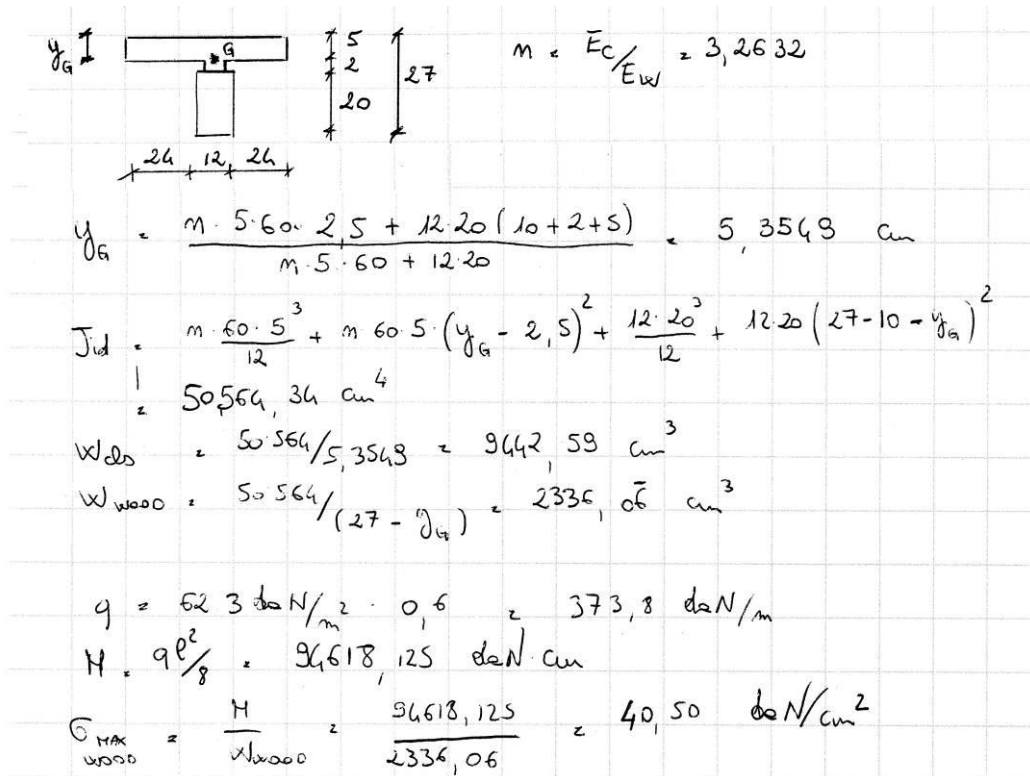 y_G G 5 2 20 27 n = E_C/E_W = 3,2632
24 12 24
y_G = (n · 5·60 · 2,5 + 12·20 (10+2+5)) / (n·5·60 + 12·20) = 5,3549 cm
J_id = n·60·5³/12 + n 60·5·(y_G - 2,5)² + 12·20³/12 + 12·20 (27-10-y_G)²
= 50564,34 cm⁴
W_cls = 50·564/5,3549 = 9442,59 cm³
W_WOOD = 50564/(27 - y_G) = 2336,06 cm³
q = 623 daN/m² · 0,6 = 373,8 daN/m
M = qℓ²/8 = 94618,125 daN·cm
σ_MAX WOOD = M/W_WOOD = 94618,125/2336,06 = 40,50 daN/cm²